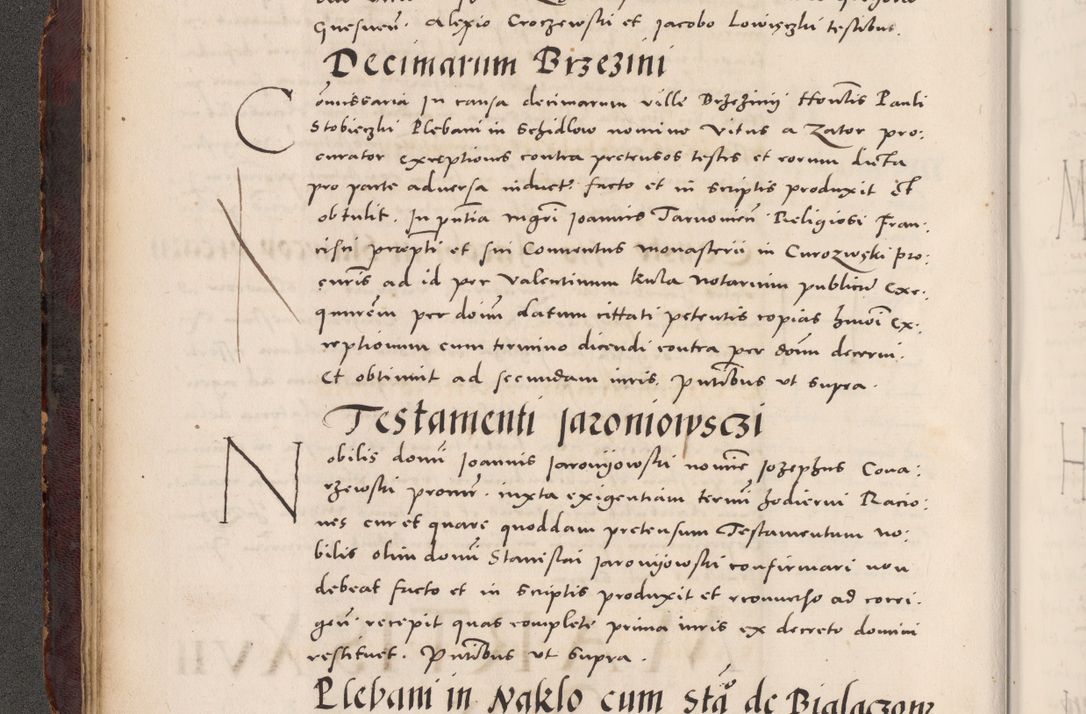 Gnesnen̄. Alexio Croczewski et Jacobo Lowięczki testibus.
Decimarum Brzezini
Com̄issaria In causa decimarum ville Brzezinij Hon̄lis Pauli
Stobieczki Plebani in Schidlow nomine Vitus a Zator pro:
curator exceptiones contra pretensos testes et eorum dicta
pro parte adversa induct. facto et in scriptis produxit et
obtulit. In pn̄tia mgr̄i Joannis Tarnomen̄ Religiosi Fran:
cisci prӕpti et sui Conventus monasterii in Curozwęki pro:
curis ad id per Valentinum Kula Notarium publicū exe:
qunrēm per doīm datum cittati petentis copias hmōi ex:
ceptionum cum termino dicendi contra per doīm decerni.
Et obtinuit ad secundam iuris. Pn̄tibus ut supra.
Testamenti Jaroniowsczi
Nobilis domī Joannis Jaronijowski nomīe Jozephus Cona:
rzewski procur. iuxta exigentiam termī hodierni Racio:
nes cur et quare quoddam pretensum Testamentum no:
bilis olim domī Stanislai Jaronijowski confirmari non
debeat facto et in scriptis produxit et econverso ad corri:
gen̄ recepit quas complete prima iuris ex decreto domini
restituet. Pn̄tibus ut supra.
Plebani in Naklo cum Sta͠o de Bialaczow